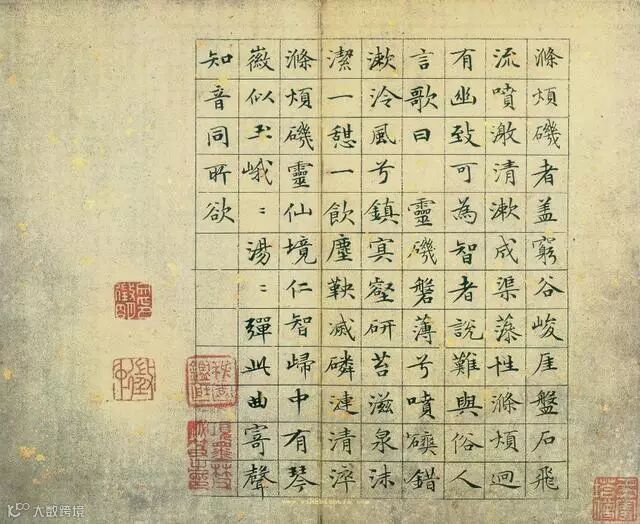 滌煩磯者盖窮谷峻厓盤石飛
流噴激清漱成渠藻性滌煩迥
有幽致可為智者說難與俗人
言歌曰 靈磯磐薄兮噴錯
漱泠風兮鎮冥壑研苔滋泉沫
潔一憩一飲塵鞅滅磷漣清淬
滌煩磯靈仙境仁智歸中有琴
徽似玉峨〻湯〻彈此曲寄聲
知音同所欲
大数跨境